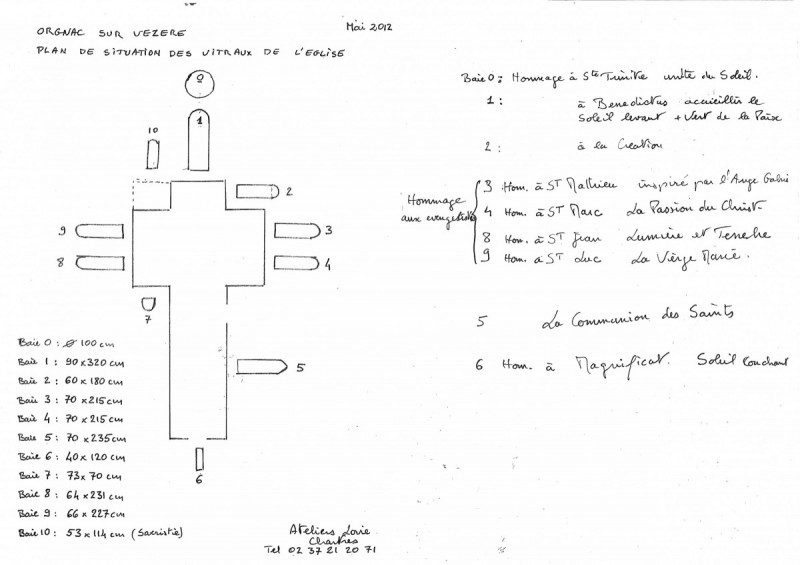 ORGNAC SUR VEZERE
Mai 2012
PLAN DE SITUATION DES VITRAUX DE L'EGLISE
0
1
10
2
9
3
8
4
7
5
6
Baie 0 : ø 100 cm
Baie 1 : 90 x 320 cm
Baie 2 : 60 x 180 cm
Baie 3 : 70 x 215 cm
Baie 4 : 70 x 215 cm
Baie 5 : 70 x 235 cm
Baie 6 : 40 x 120 cm
Baie 7 : 73 x 70 cm
Baie 8 : 64 x 231 cm
Baie 9 : 66 x 227 cm
Baie 10 : 53 x 114 cm (Sacristie)
Ateliers Lorie
Chartres
Tel 02 37 21 20 71
Baie 0 : Hommage à Ste Trinite unite du Soleil.
1 : à Benedictus accueillir le
Soleil levant + Vert de la Paix
2 : à la Creation
Hommage
aux evangelistes
3 Hom. à ST Mathieu inspiré par l'Ange Gabri
4 Hom. à ST Marc La Passion du Christ
8 Hom. à ST Jean Lumière et Tenebre
9 Hom. à ST Luc La Vierge Marie.
5 La Communion des Saints
6 Hom. à Magnificat. Soleil couchant